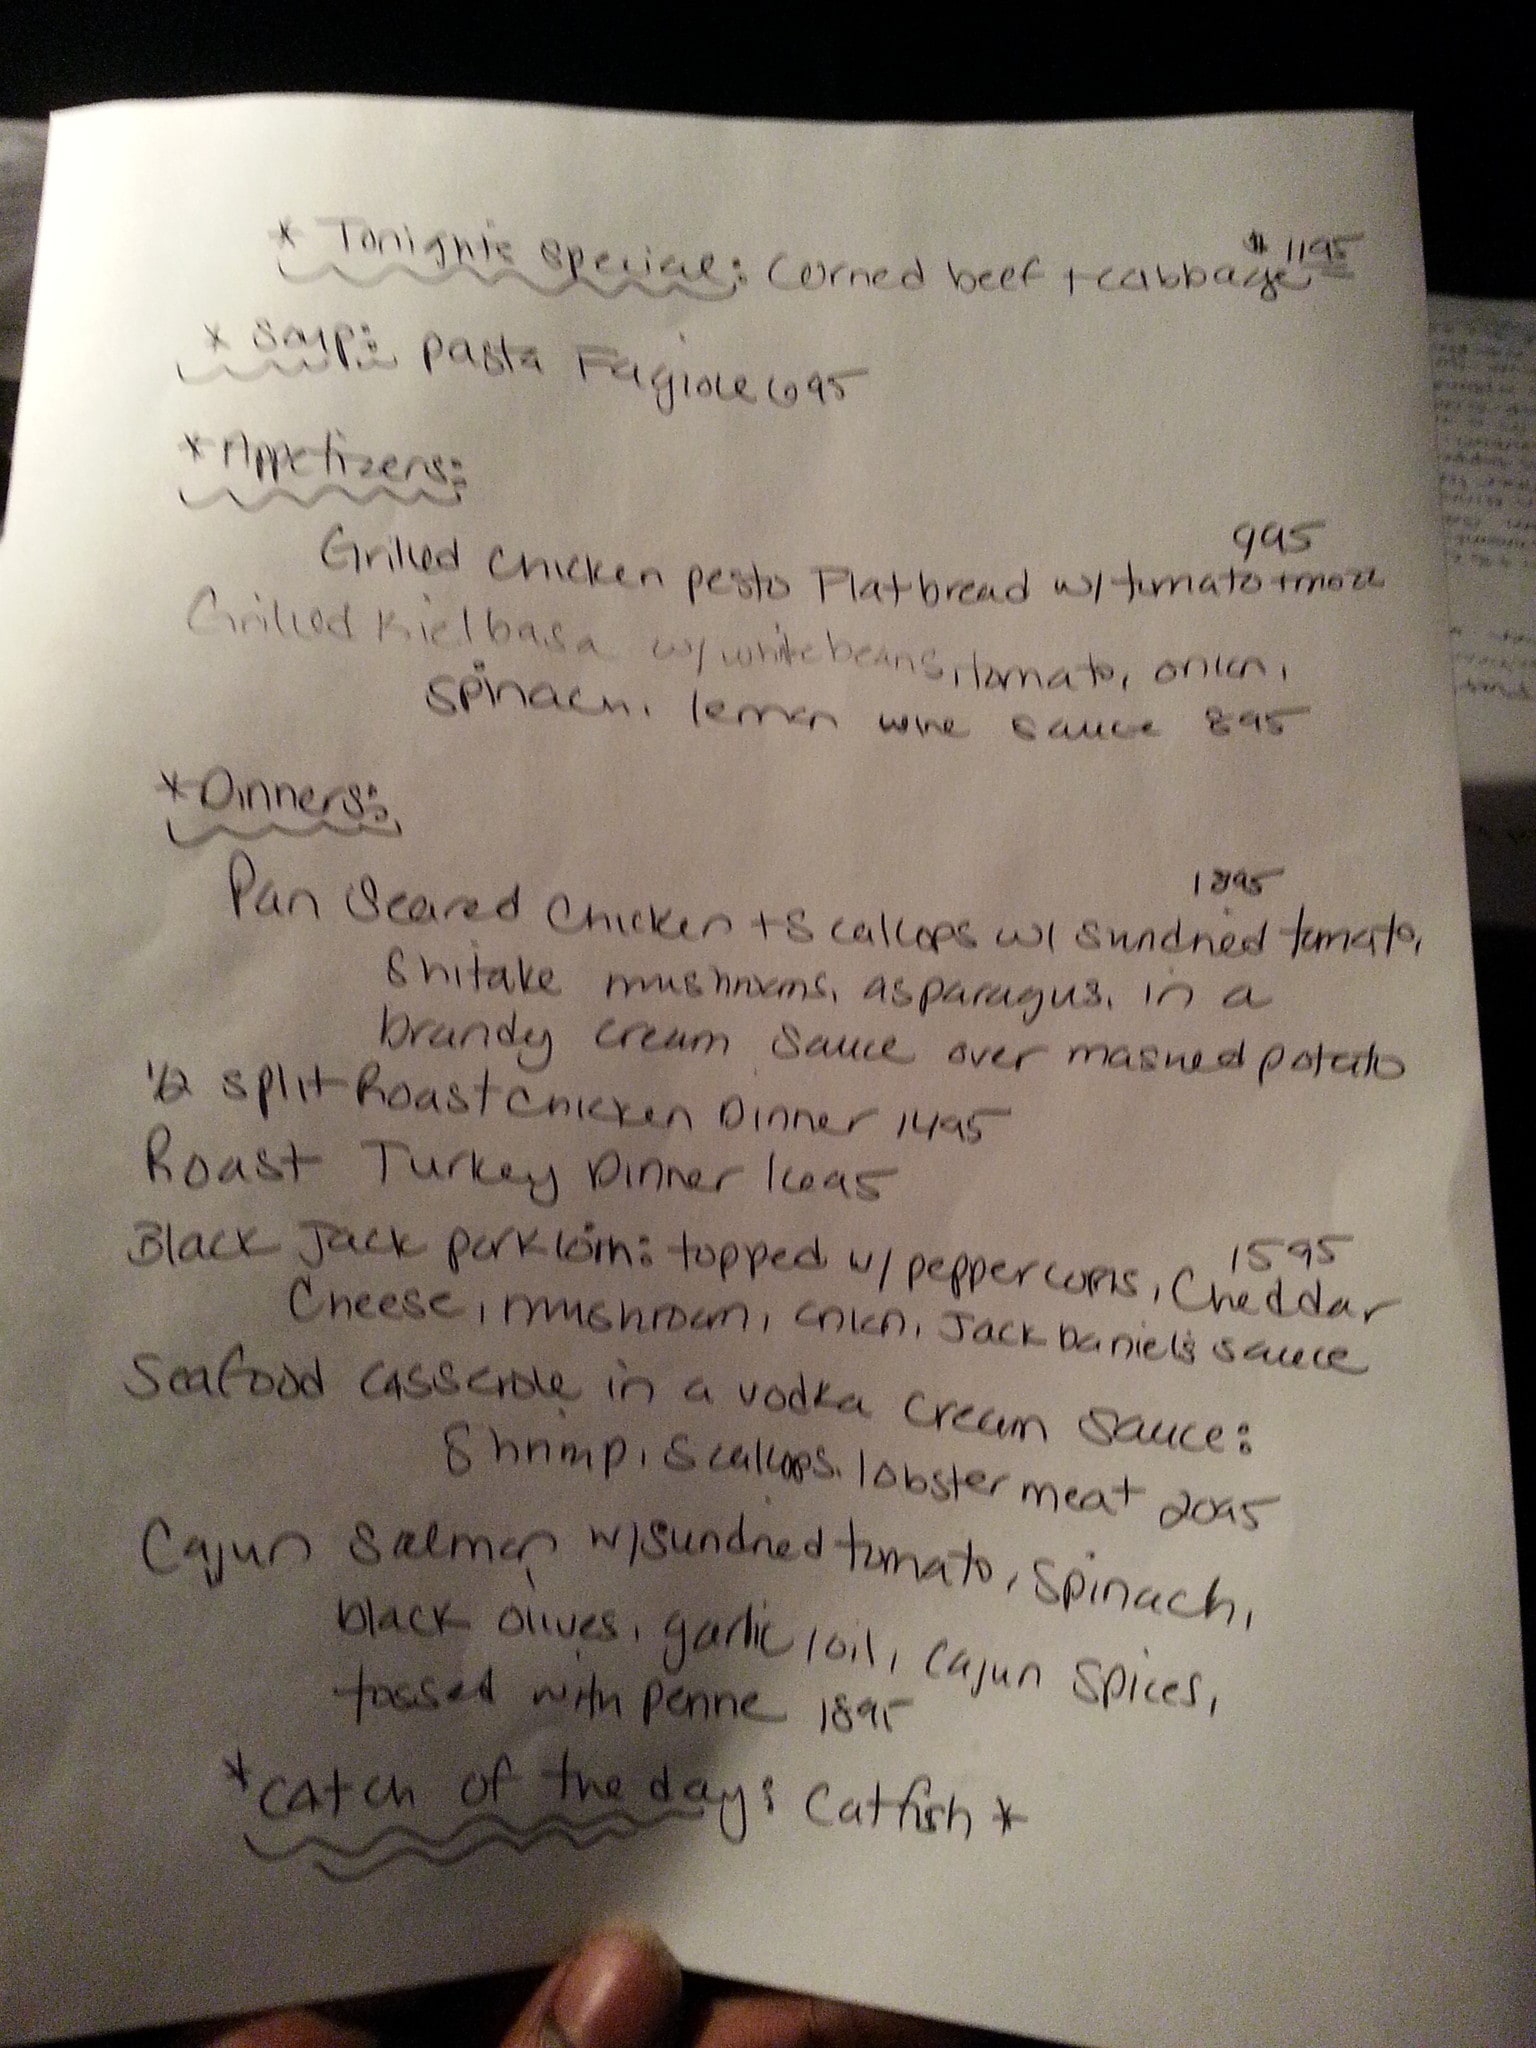 * Tonight's Special: Corned beef + cabbage $1195
* Soup: pasta Fagiole 695
* Appetizers:
Grilled chicken pesto Flatbread w/ tomato + mozz 995
Grilled Kielbasa w/ white beans, tomato, onion,
spinach, lemon wine sauce 895
* Dinners:
Pan Seared Chicken + Scallops w/ sundried tomato, 1895
Shitake mushrooms, asparagus, in a
brandy cream sauce over mashed potato
1/2 split Roast Chicken Dinner 1495
Roast Turkey Dinner 1695
Black Jack pork loin: topped w/ peppercorns, Cheddar 1595
Cheese, mushroom, onion, Jack Daniel's sauce
Seafood casserole in a vodka cream sauce:
Shrimp, scallops, lobster meat 2095
Cajun Salmon w/ sundried tomato, spinach,
black olives, garlic, oil, cajun spices,
tossed with penne 1895
* Catch of the day: Catfish *